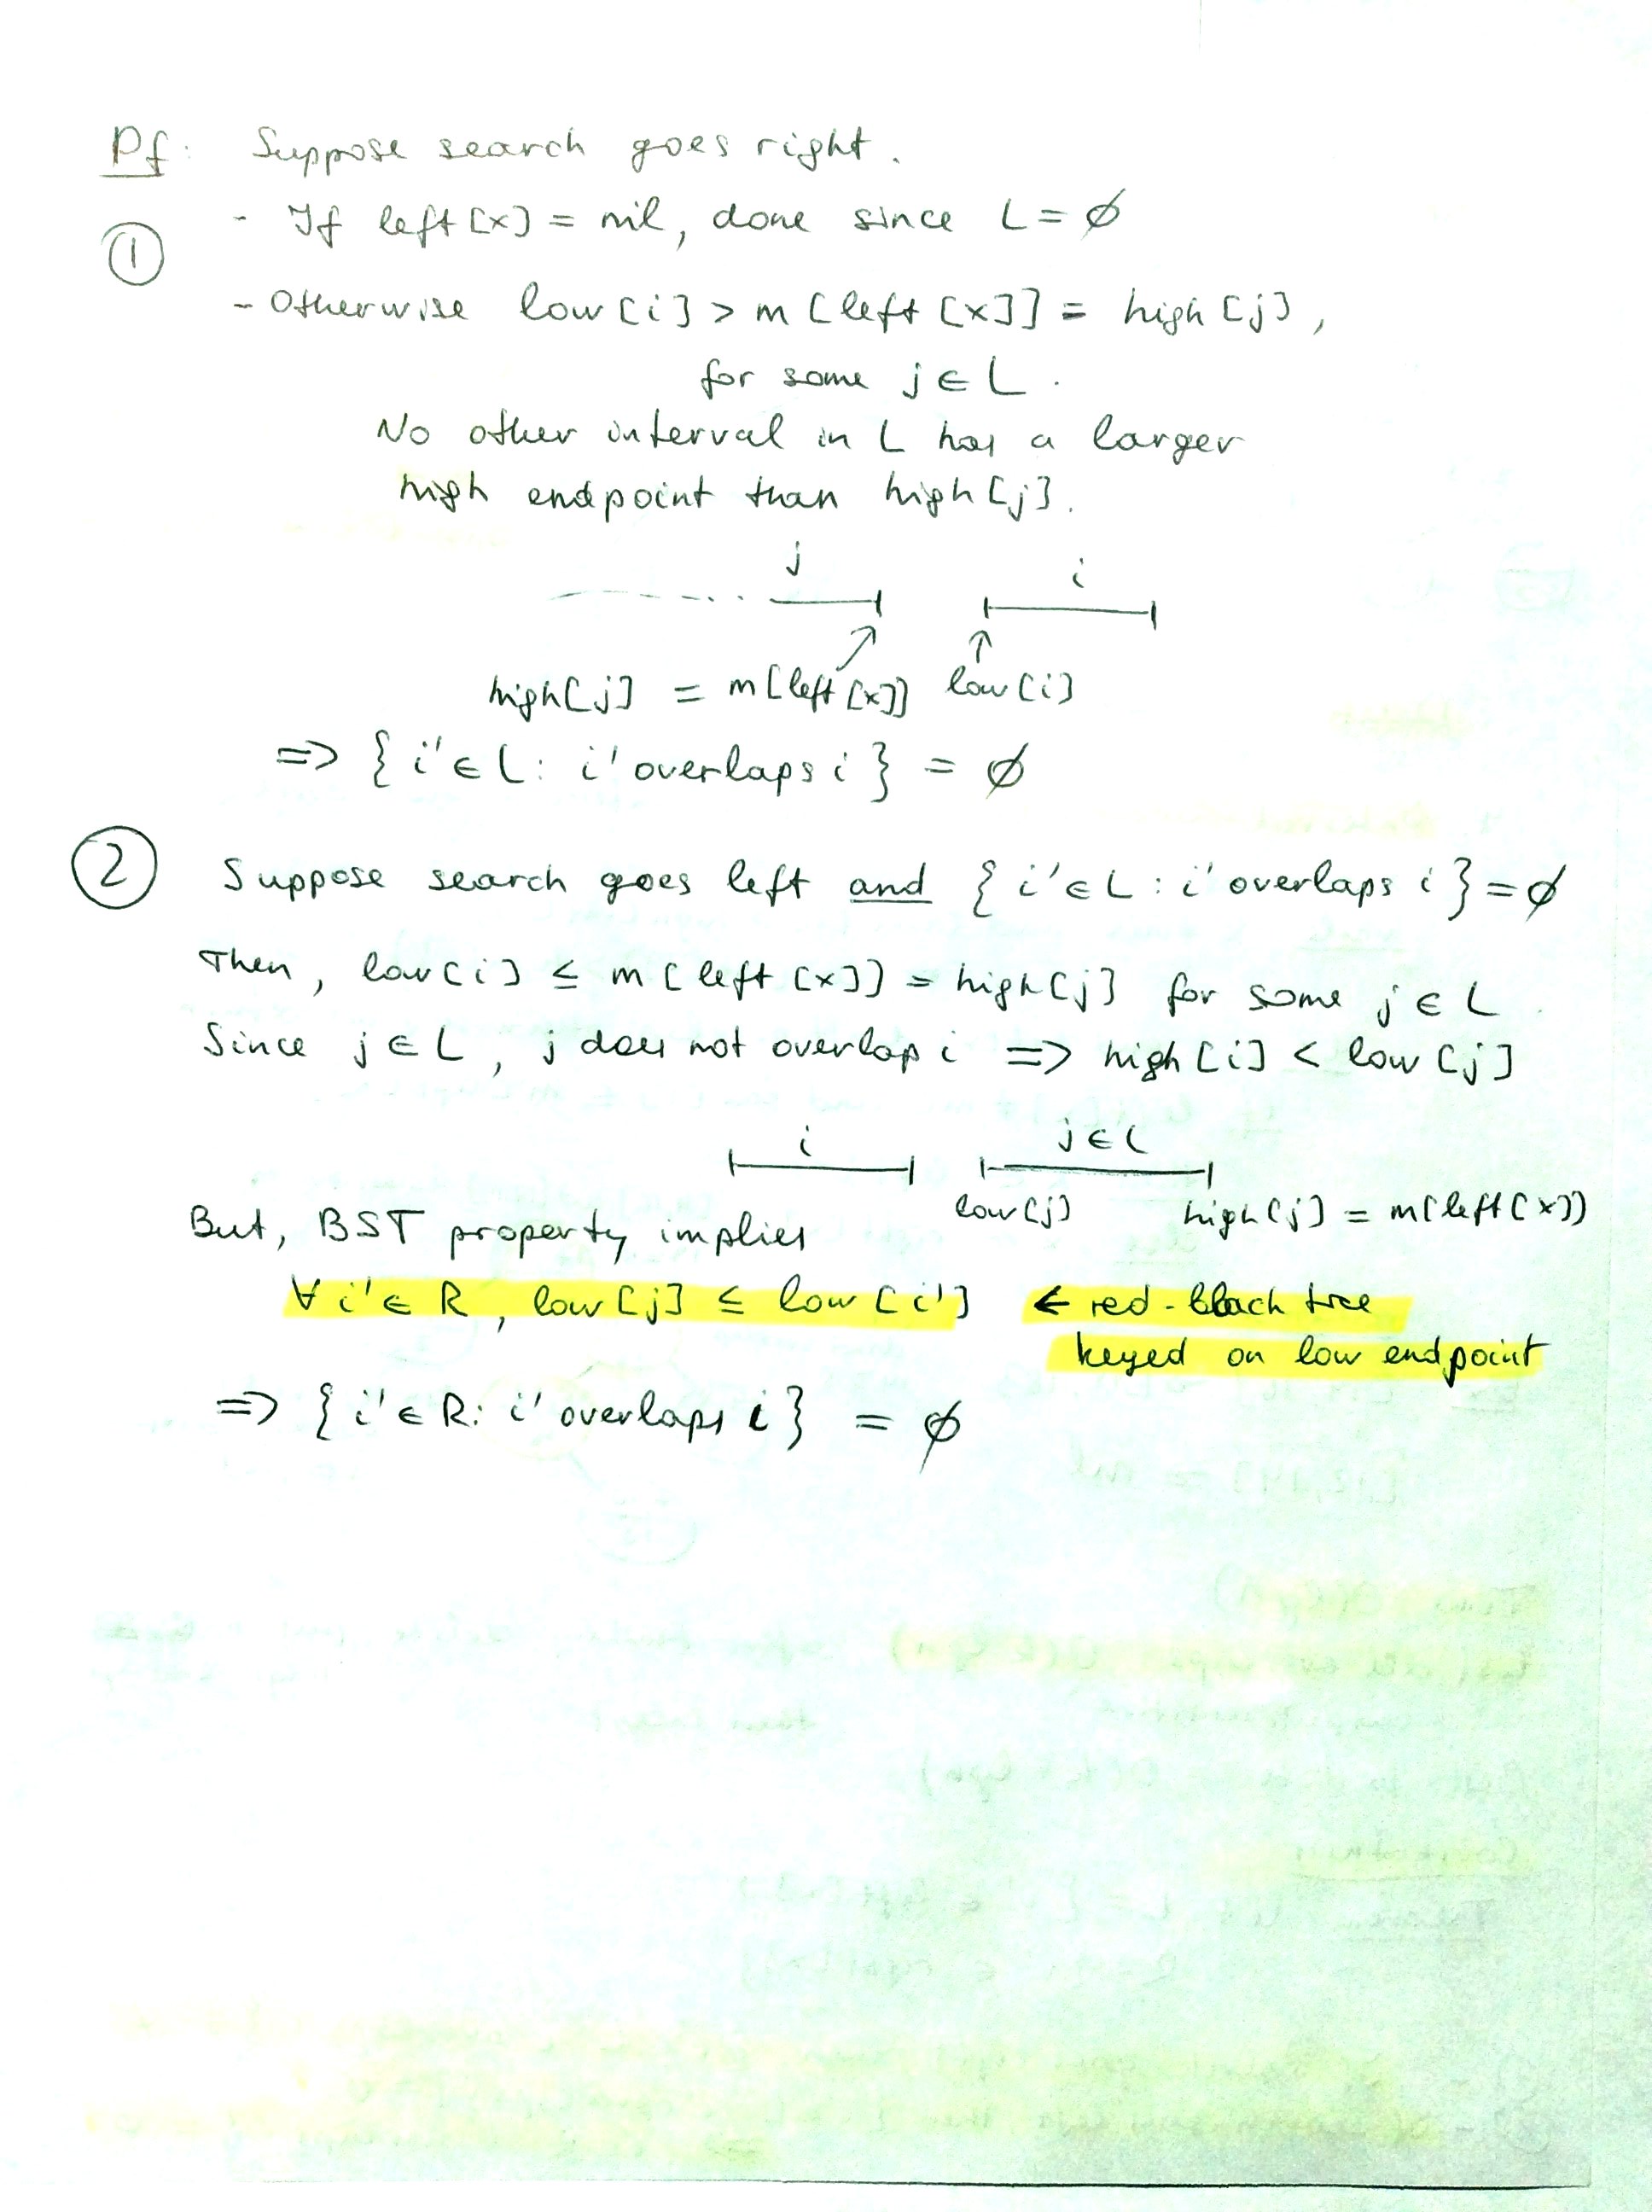 Pf: Suppose search goes right.
① - If left[x] = nil, done since L = ∅
- Otherwise low[i] > m[left[x]] = high[j],
for some j ∈ L.
No other interval in L has a larger
high endpoint than high[j].
j i
high[j] = m[left[x]] low[i]
=> { i' ∈ L: i' overlaps i } = ∅
② Suppose search goes left and { i' ∈ L : i' overlaps i } = ∅
Then, low[i] ≤ m[left[x]] = high[j] for some j ∈ L.
Since j ∈ L, j does not overlap i => high[i] < low[j]
i j ∈ L
low[j] high[j] = m[left[x]]
But, BST property implies
∀ i' ∈ R, low[j] ≤ low[i'] ← red-black tree
keyed on low endpoint
=> { i' ∈ R: i' overlaps i } = ∅